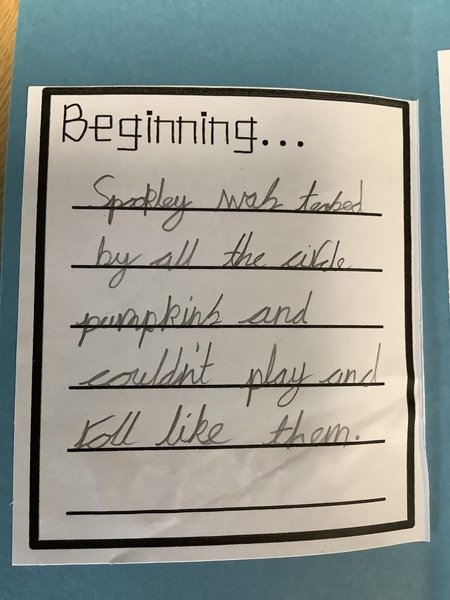 Beginning...
Spookley was teased
by all the circle
pumpkins and
couldn't play and
roll like them.